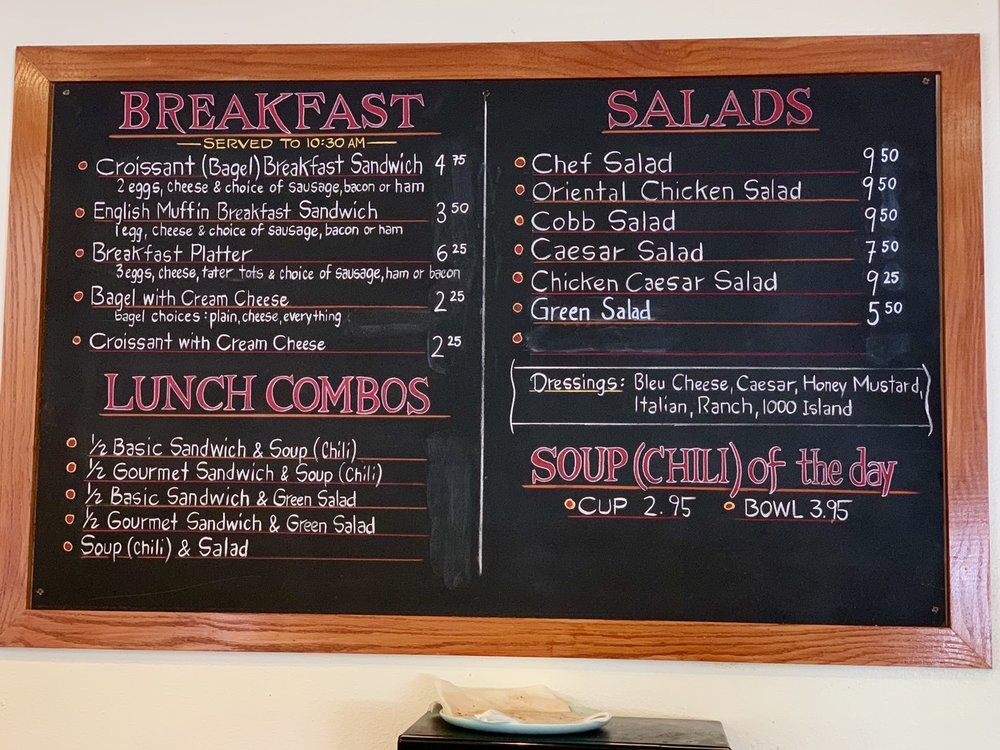 BREAKFAST
SERVED TO 10:30 AM
Croissant (Bagel) Breakfast Sandwich 4 75
2 eggs, cheese & choice of sausage, bacon or ham
English Muffin Breakfast Sandwich 3 50
1 egg, cheese & choice of sausage, bacon or ham
Breakfast Platter 6 25
3 eggs, cheese, tater tots & choice of sausage, ham or bacon
Bagel with Cream Cheese 2 25
bagel choices: plain, cheese, everything
Croissant with Cream Cheese 2 25
LUNCH COMBOS
1/2 Basic Sandwich & Soup (Chili)
1/2 Gourmet Sandwich & Soup (Chili)
1/2 Basic Sandwich & Green Salad
1/2 Gourmet Sandwich & Green Salad
Soup (Chili) & Salad
SALADS
Chef Salad 9 50
Oriental Chicken Salad 9 50
Cobb Salad 9 50
Caesar Salad 7 50
Chicken Caesar Salad 9 25
Green Salad 5 50
Dressings: Bleu Cheese, Caesar, Honey Mustard,
Italian, Ranch, 1000 Island
SOUP (CHILI) of the day
CUP 2.95 BOWL 3.95